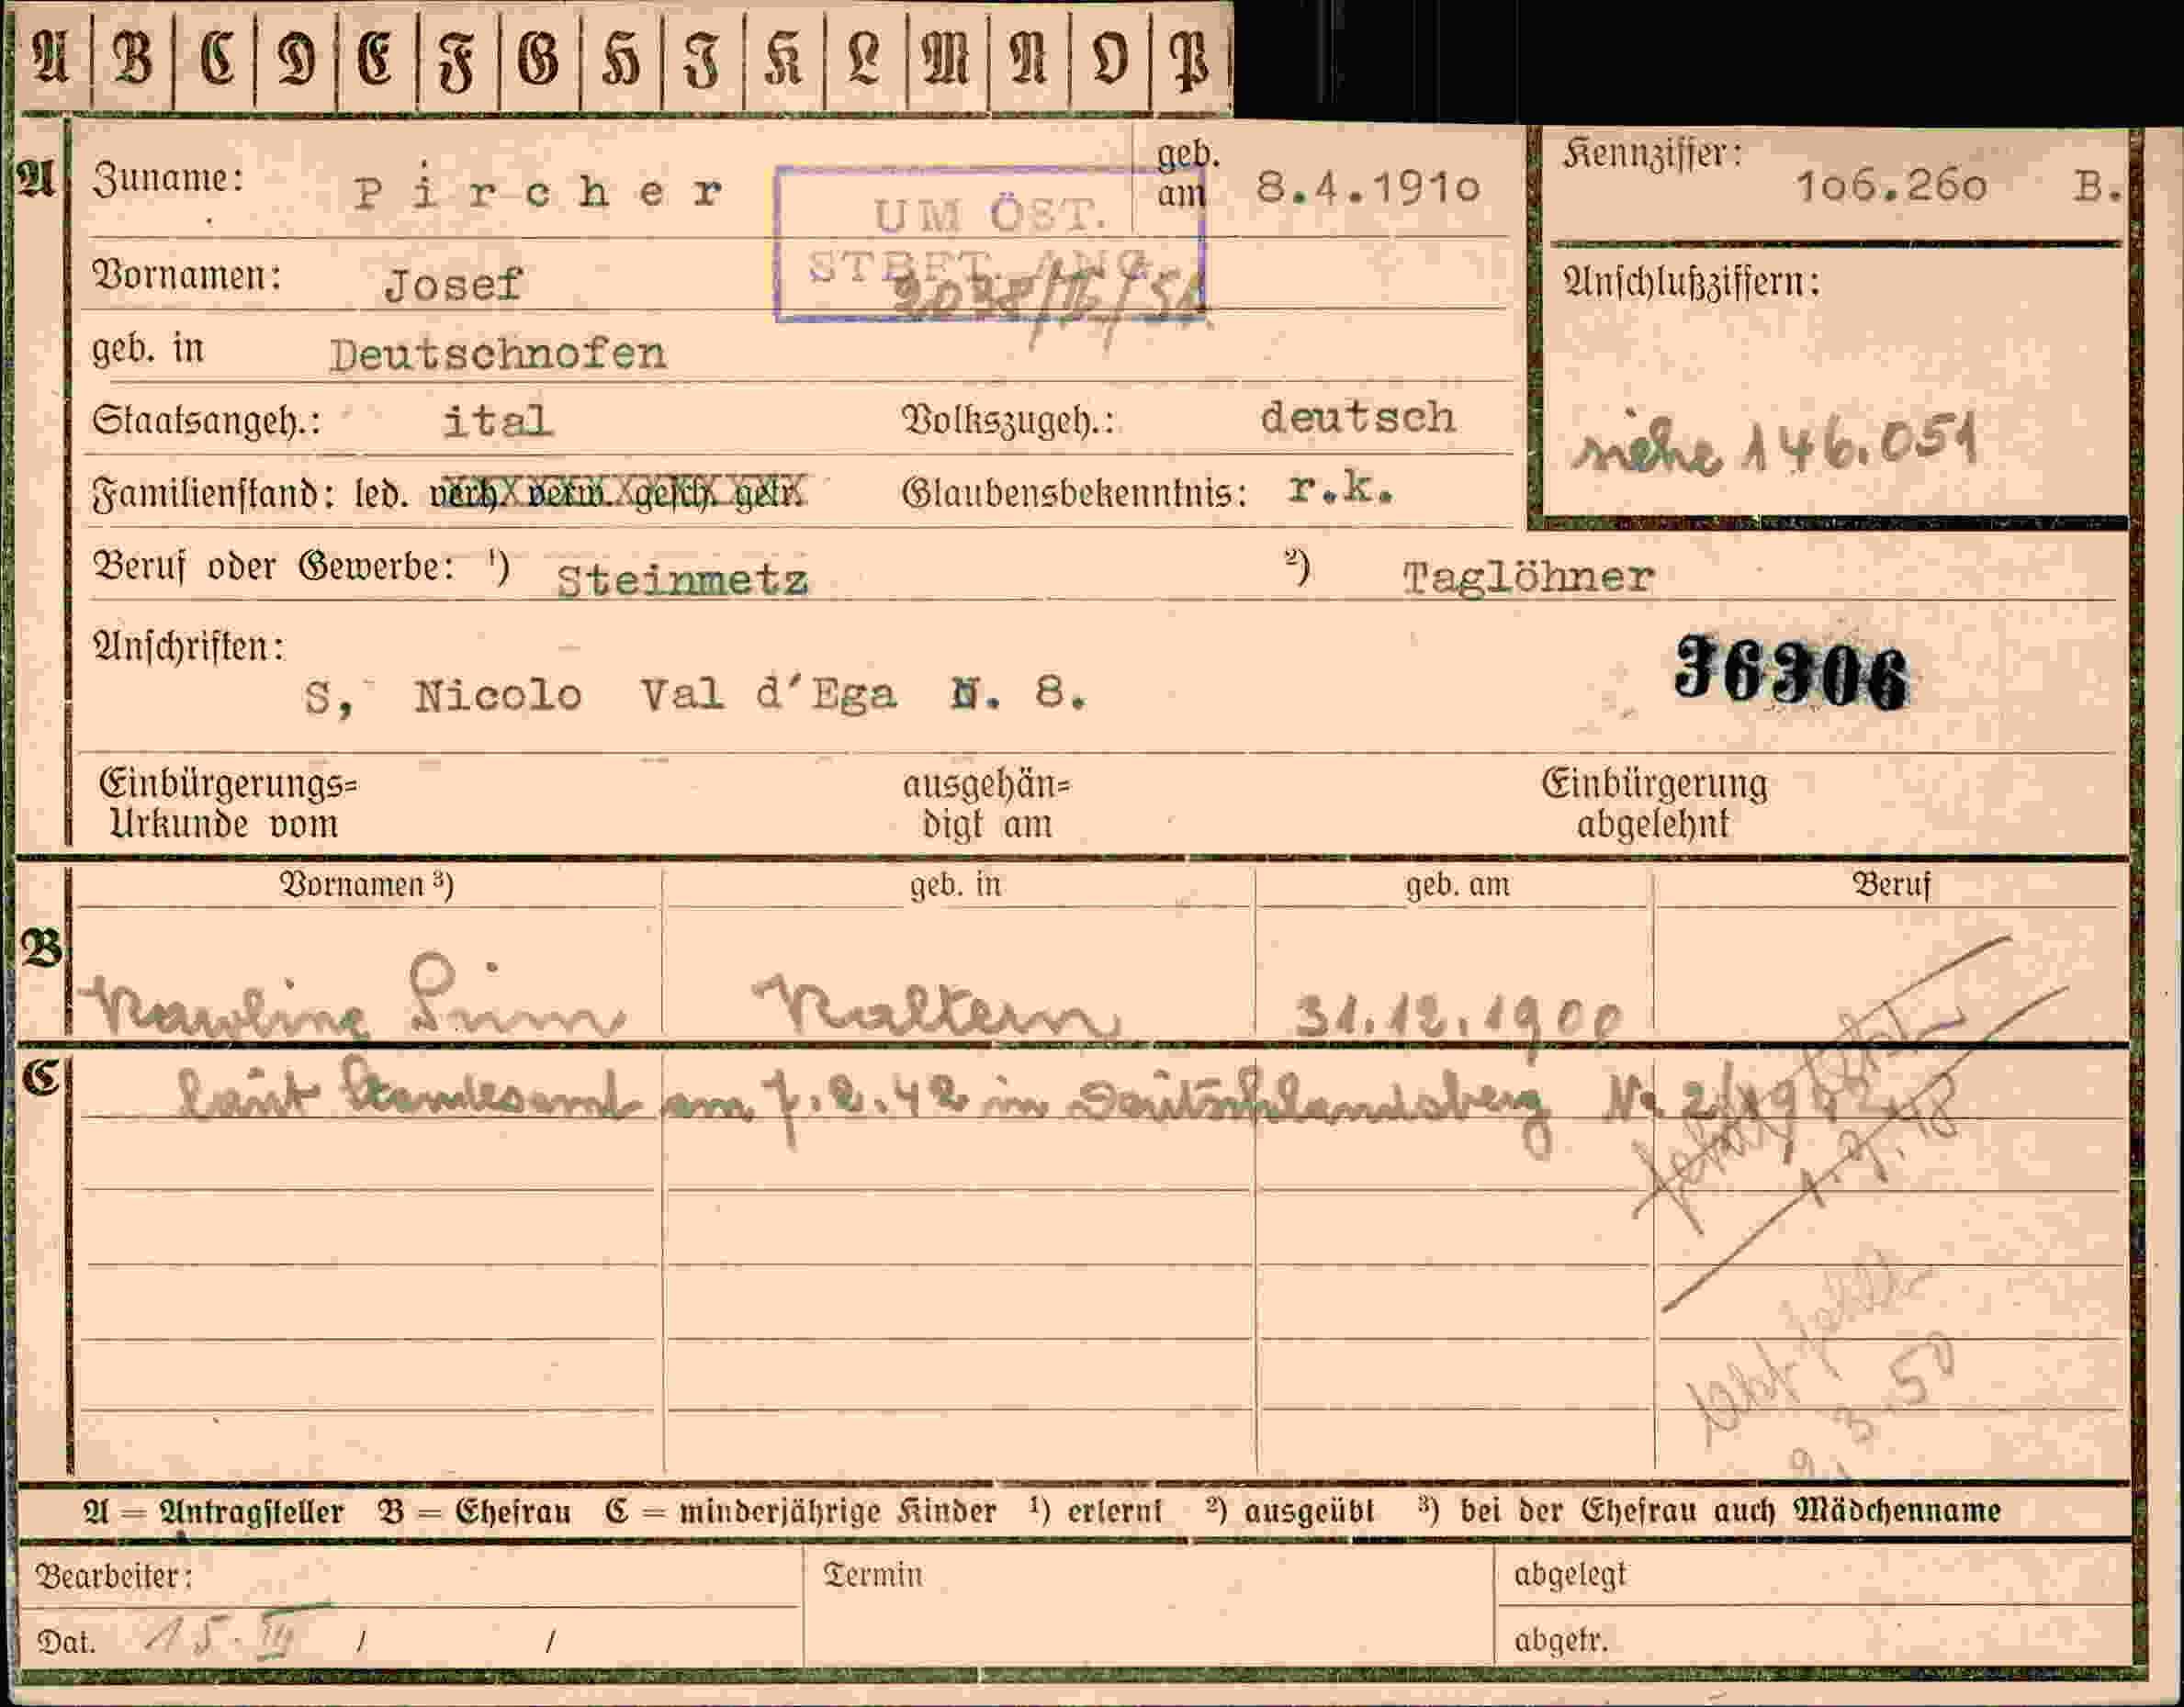 A B C D E F G H I K L M N O P
A Zuname: Pircher geb. am 8.4.1910 Kennziffer: 106.260 B.
UM ÖST.
STBFT. ANG.
Vornamen: Josef Anschlußziffern:
geb. in Deutschnofen
Staatsangeh.: ital Volkszugeh.: deutsch siehe 146.051
Familienstand: led. verh. verw. gesch. getr. Glaubensbekenntnis: r.k.
Beruf oder Gewerbe: ¹) Steinmetz ²) Taglöhner
Anschriften: 36306
S, Nicolo Val d'Ega N. 8.
Einbürgerungs= ausgehän= Einbürgerung
Urkunde vom digt am abgelehnt
Vornamen ³) geb. in geb. am Beruf
B
Karoline Kaltern 31.12.1900
C laut Standesamt am 7.2.42 in Deutschlandsberg Nr.
1.7.48
3.50
A = Antragsteller B = Ehefrau C = minderjährige Kinder ¹) erlernt ²) ausgeübt ³) bei der Ehefrau auch Mädchenname
Bearbeiter: Termin abgelegt
Dat. 15. III / / abgetr.